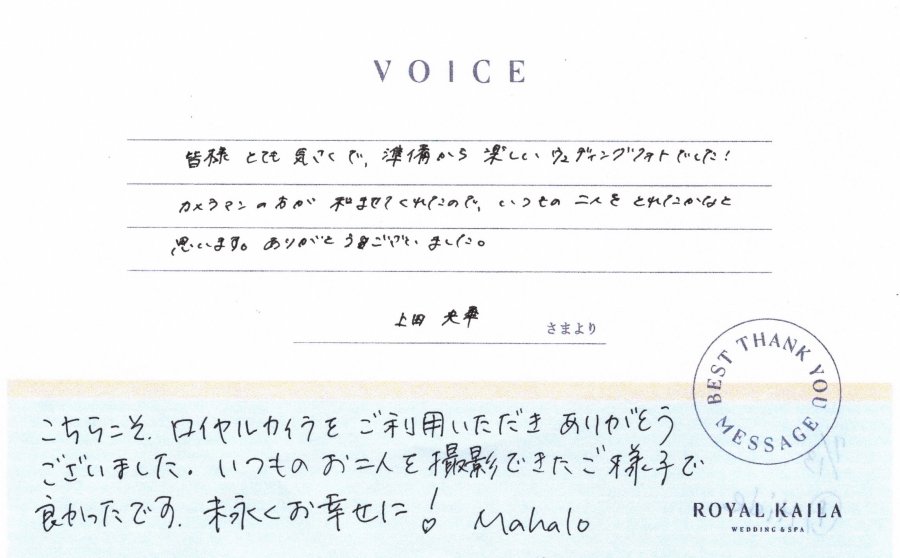 VOICE
皆様 とても 気さくで、準備から 楽しい ウェディングフォトでした！
カメラマンの方が 和ませてくれたので、いつもの 二人を とれたかなと
思います。ありがとうございました。
上田 央華
さまより
BEST THANK YOU MESSAGE
こちらこそ、ロイヤルカイラを ご利用いただき ありがとう
ございました。いつものお二人を撮影できたご様子で
良かったです。末永くお幸せに！ Mahalo
ROYAL KAILA
WEDDING & SPA